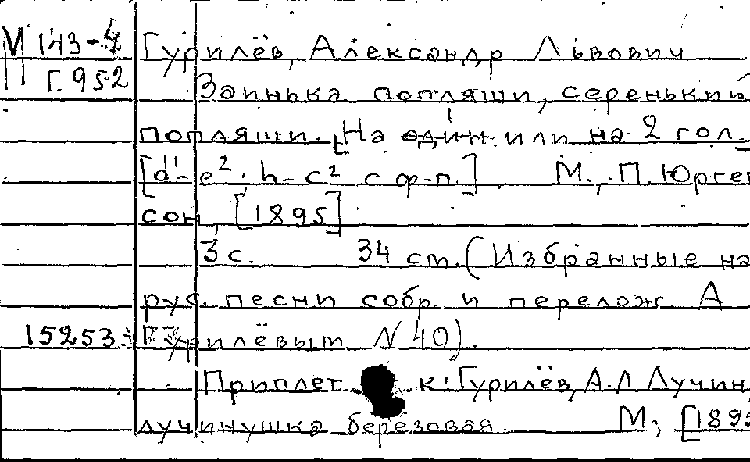 М 143-4 Гурилёв, Александр Львович
П Г. 952
Заинька попляши, серенький
попляши. [На един. или на 2 гол.
[d¹-e²; h-c² с ф-п.] М., П. Юрген
сон, [1895]
3 с. 34 см. (Избранные на
рус. песни собр. и перелож. А
15253 Гурилёвым N 40).
Приплет. к: Гурилёв, А. Л. Лучин,
лучинушка березовая М., [189